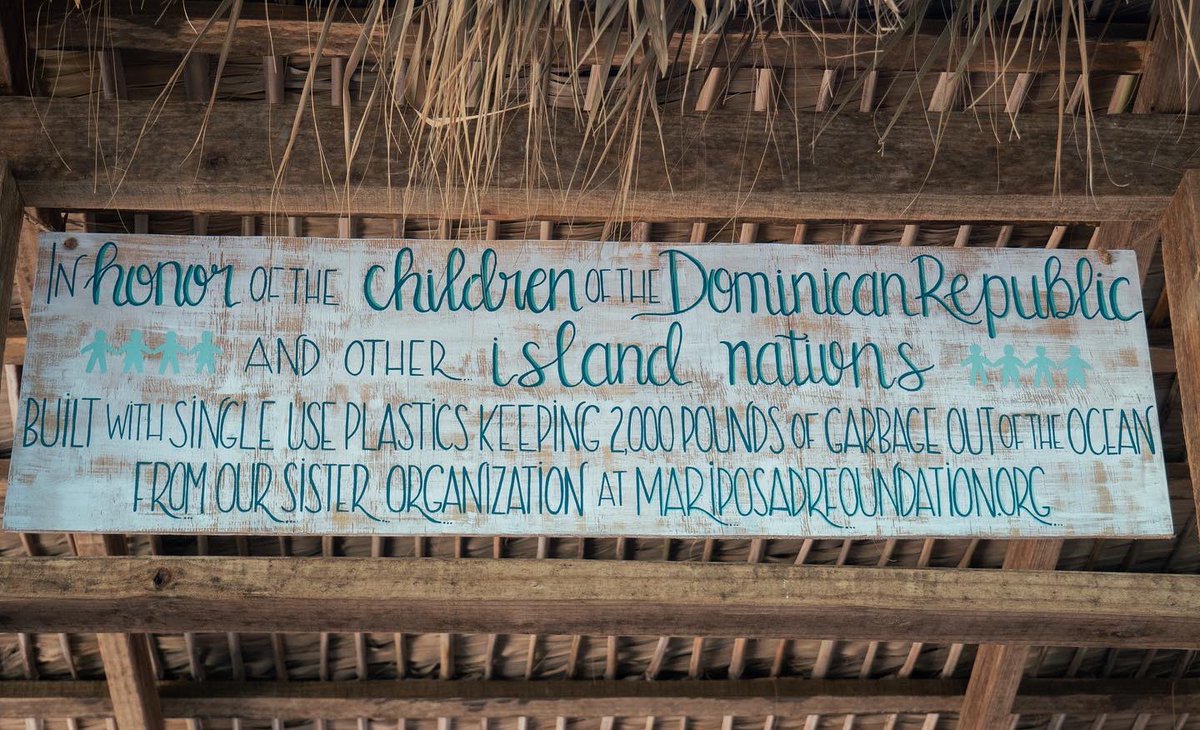 In honor OF THE children OF THE Dominican Republic
AND OTHER island nations
BUILT WITH SINGLE USE PLASTICS KEEPING 2,000 POUNDS OF GARBAGE OUT OF THE OCEAN
FROM OUR SISTER ORGANIZATION AT MARIPOSADRFOUNDATION.ORG